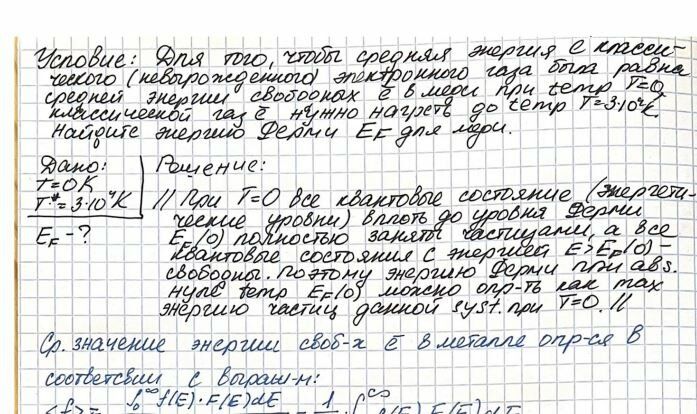 Условие: Для того, чтобы средняя энергия е класси-
ческого (невырожденного) электронного газа была равна
средней энергии свободных ē в меди при temp T=0,
классический газ ē нужно нагреть до temp T=3·10⁴K.
Найдите энергию Ферми E_F для меди.
Дано:
T=0K
T*=3·10⁴K
E_F-?
Решение:
// При T=0 все квантовые состояние (энергети-
ческие уровни) вплоть до уровня Ферми
E_F(0) полностью заняты частицами, а все
квантовые состояния с энергией E>E_F(0)-
свободны. Поэтому энергию Ферми при abs.
нуле temp E_F(0) можно опр-ть как max
энергию частиц данной syst. при T=0. //
Ср. значение энергии своб-х ē в металле опр-ся в
соответсвии с выраж-м:
∫₀^∞ f(E)·F(E)dE